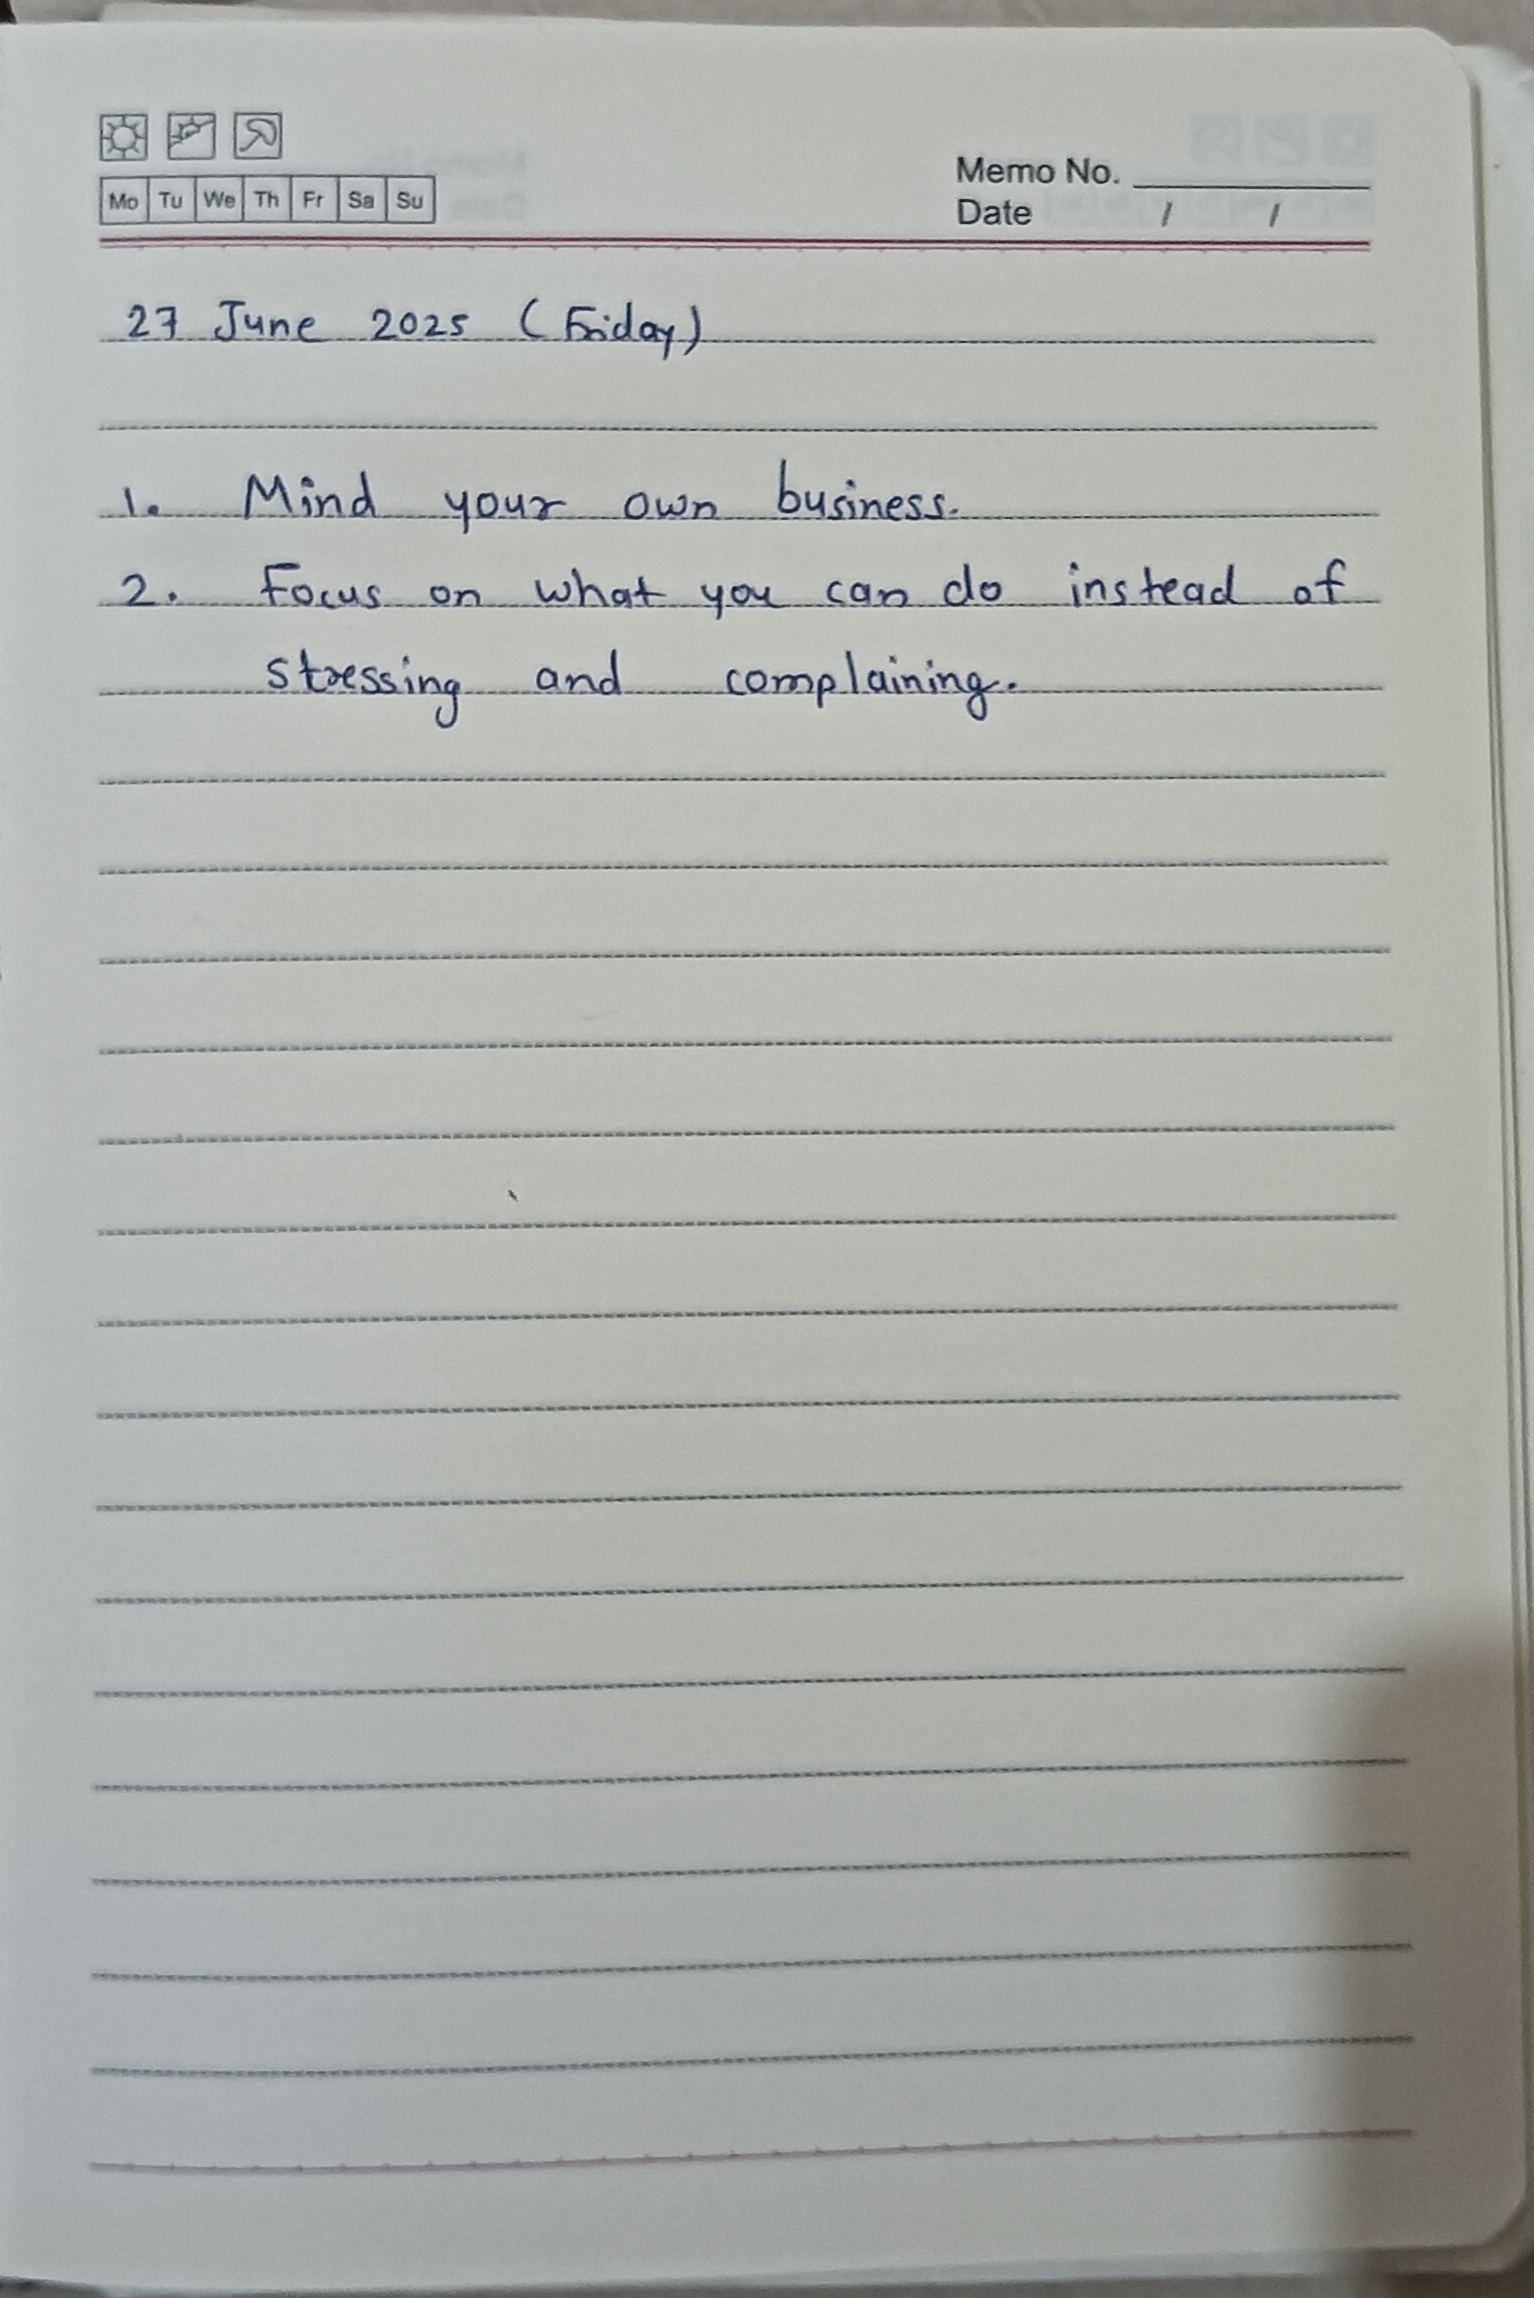 Mo Tu We Th Fr Sa Su
Memo No.
Date / /
27 June 2025 (Friday)
1. Mind your own business.
2. Focus on what you can do instead of
stressing and complaining.